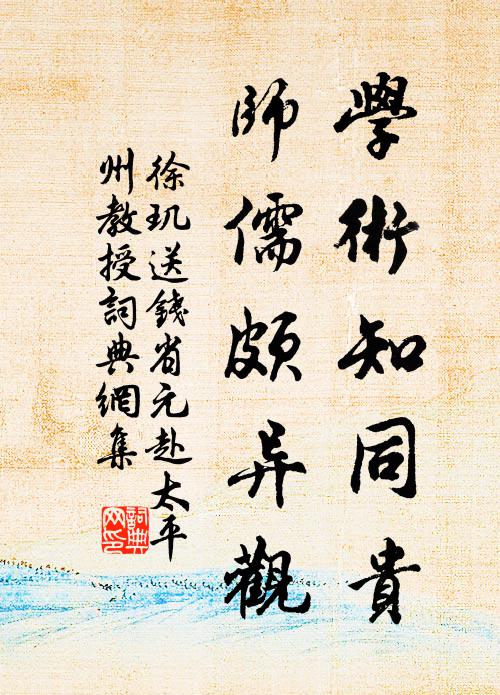 學術知同貴
師儒頗异觀
徐玑送錢省元赴太平
州教授詞典網集
詞典
网印